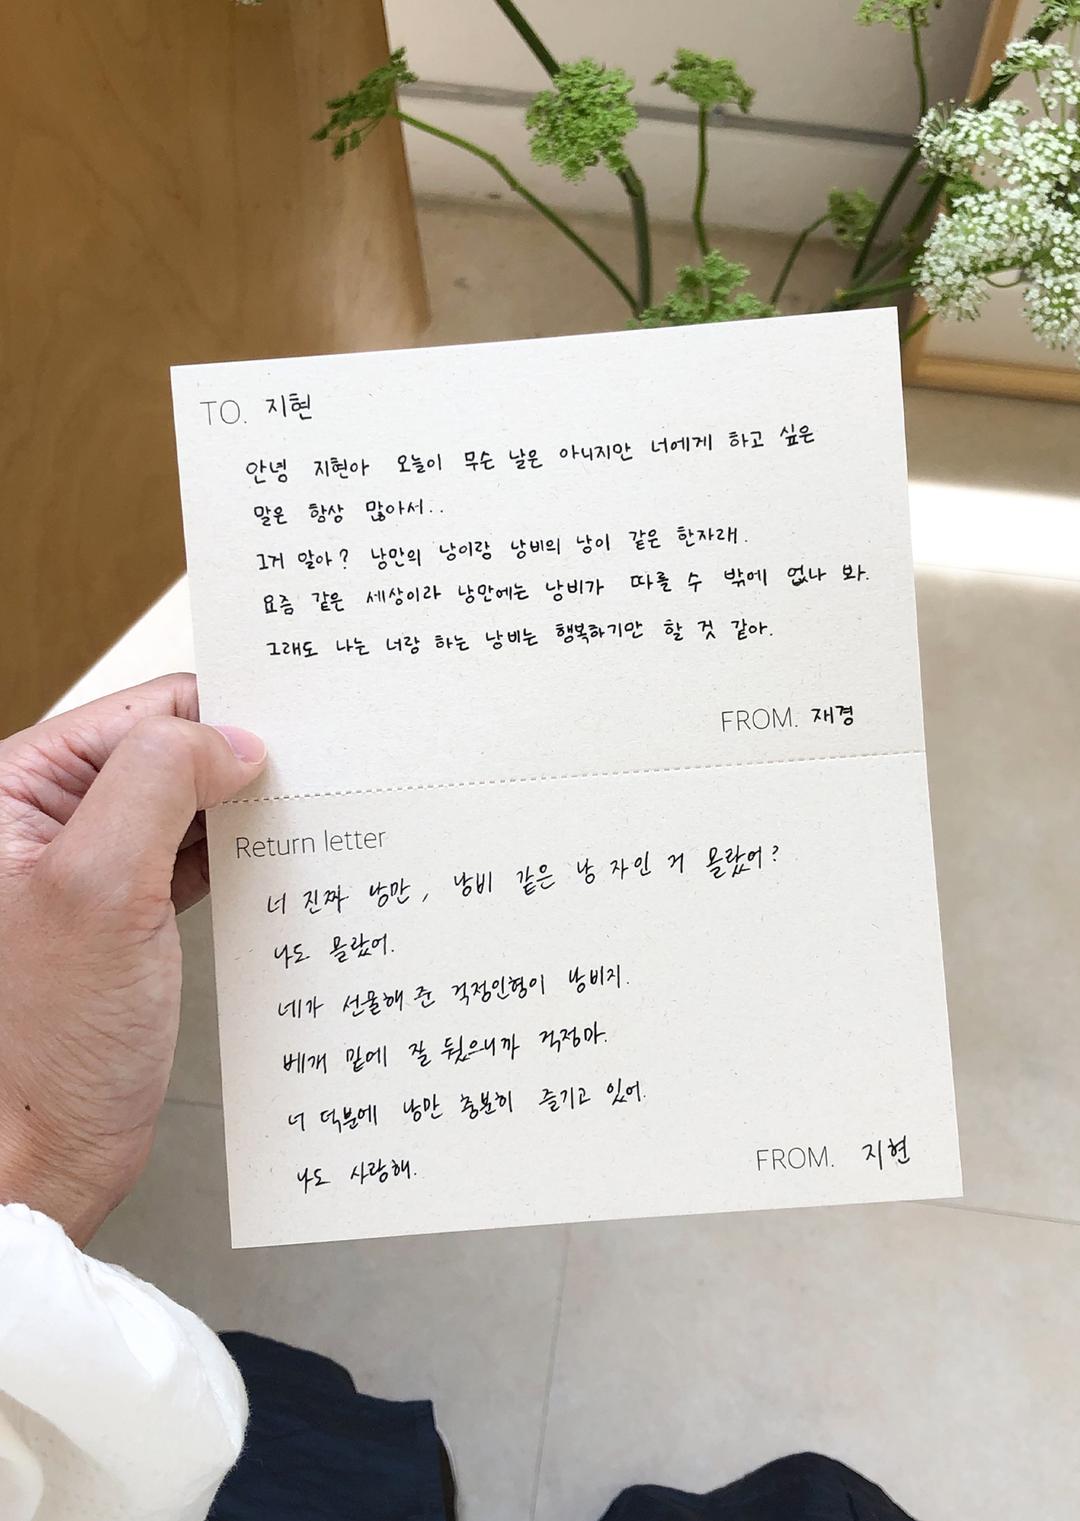 TO. 지현
안녕 지현아 오늘이 무슨 날은 아니지만 너에게 하고 싶은
말은 항상 많아서..
그거 알아? 낭만의 낭이랑 낭비의 낭이 같은 한자래.
요즘 같은 세상이라 낭만에는 낭비가 따를 수 밖에 없나 봐.
그래도 나는 너랑 하는 낭비는 행복하기만 할 것 같아.
FROM. 재경
Return letter
너 진짜 낭만, 낭비 같은 낭 자인 거 몰랐어?
나도 몰랐어.
네가 선물해 준 걱정인형이 낭비지.
베개 밑에 잘 뒀으니까 걱정마.
너 덕분에 낭만 충분히 즐기고 있어.
나도 사랑해.
FROM. 지현